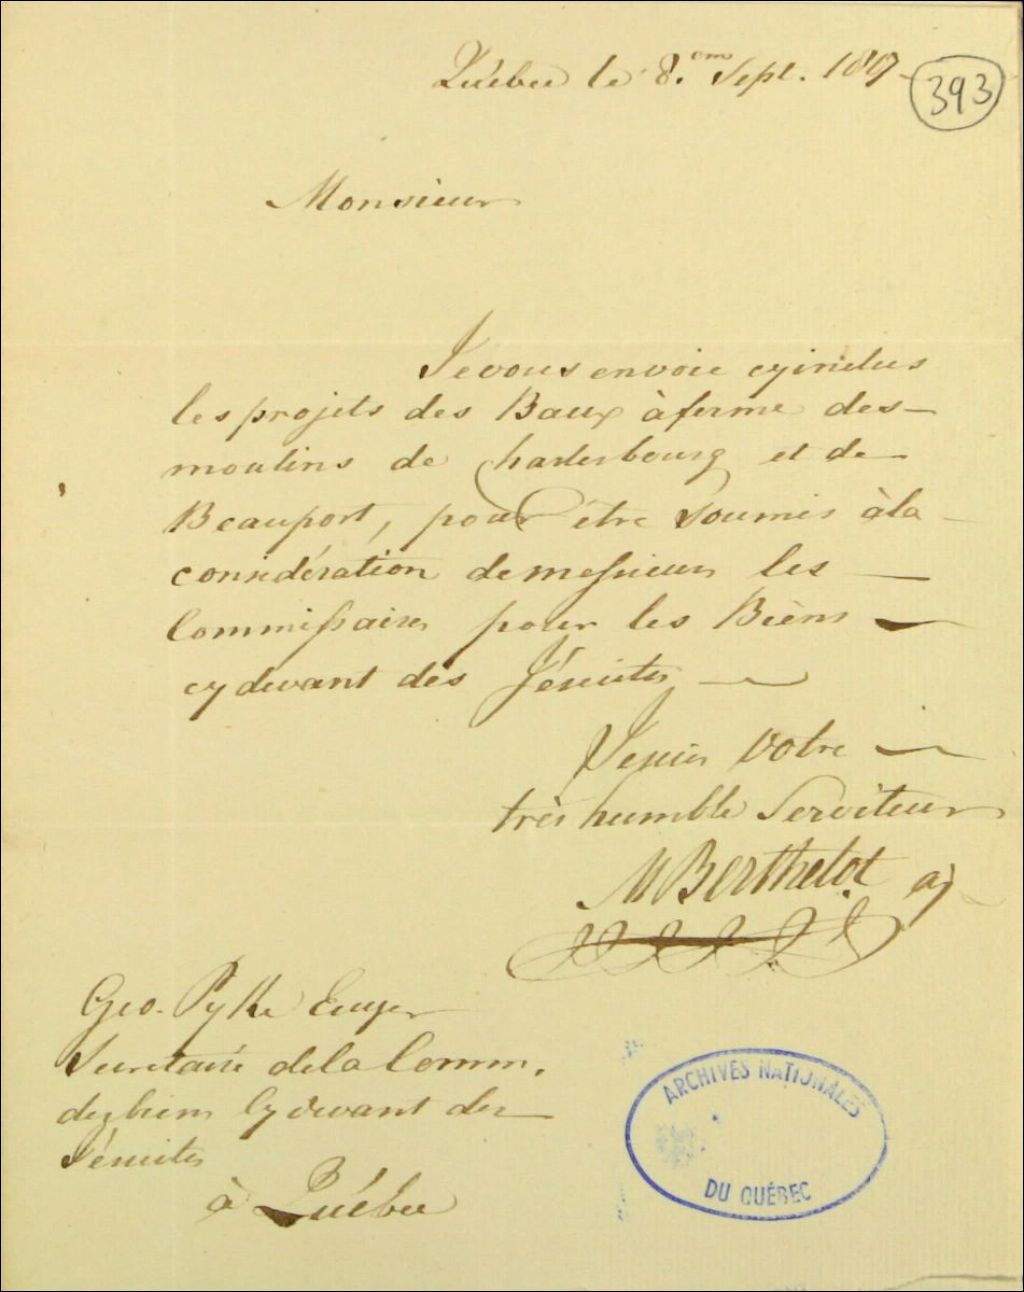 Québec le 8.em Sept. 180
393
Monsieur
Je vous envoie cyinclus
les projets des Baux à ferme des
moulins de Charlesbourg et de
Beauport, pour être soumis à la
considération de messieurs les
Commissaires pour les Biens
cydevant des Jésuites
Je suis Votre
très humble Serviteur
M Berthelot
Geo. Pyke Ecuyer
Secretaire de la Comm.
dezbiens Cydevant des
Jésuites
à Québec
ARCHIVES NATIONALES
DU QUÉBEC